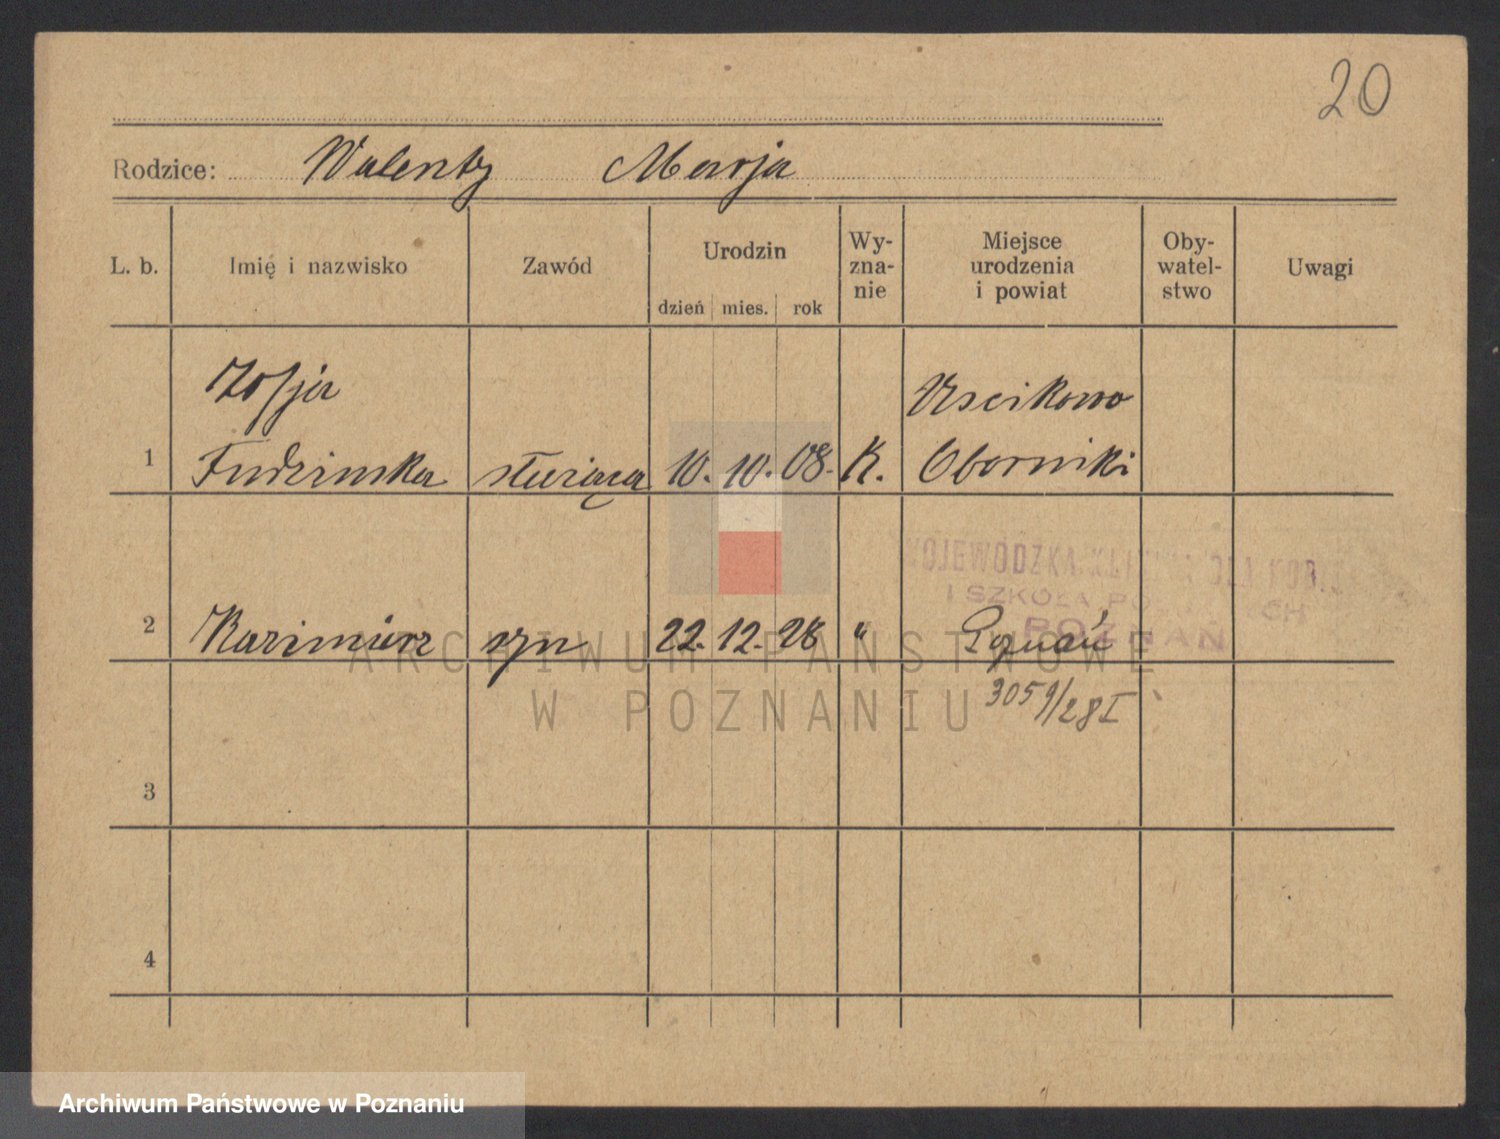 20
Rodzice: Walenty Marja
L. b. Imię i nazwisko Zawód Urodzin Wy-zna-nie Miejsce urodzenia i powiat Oby-watel-stwo Uwagi
dzień mies. rok
Zofja Uscikowo
1 Fudzinska służąca 10. 10. 08. K. Oborniki
WOJEWÓDZKA
I SZKOŁA
POZNAŃ
2 Kazimierz syn 22. 12. 28 " Poznań
3059/28 I
3
4
ARCHIWUM PAŃSTWOWE
W POZNANIU
Archiwum Państwowe w Poznaniu